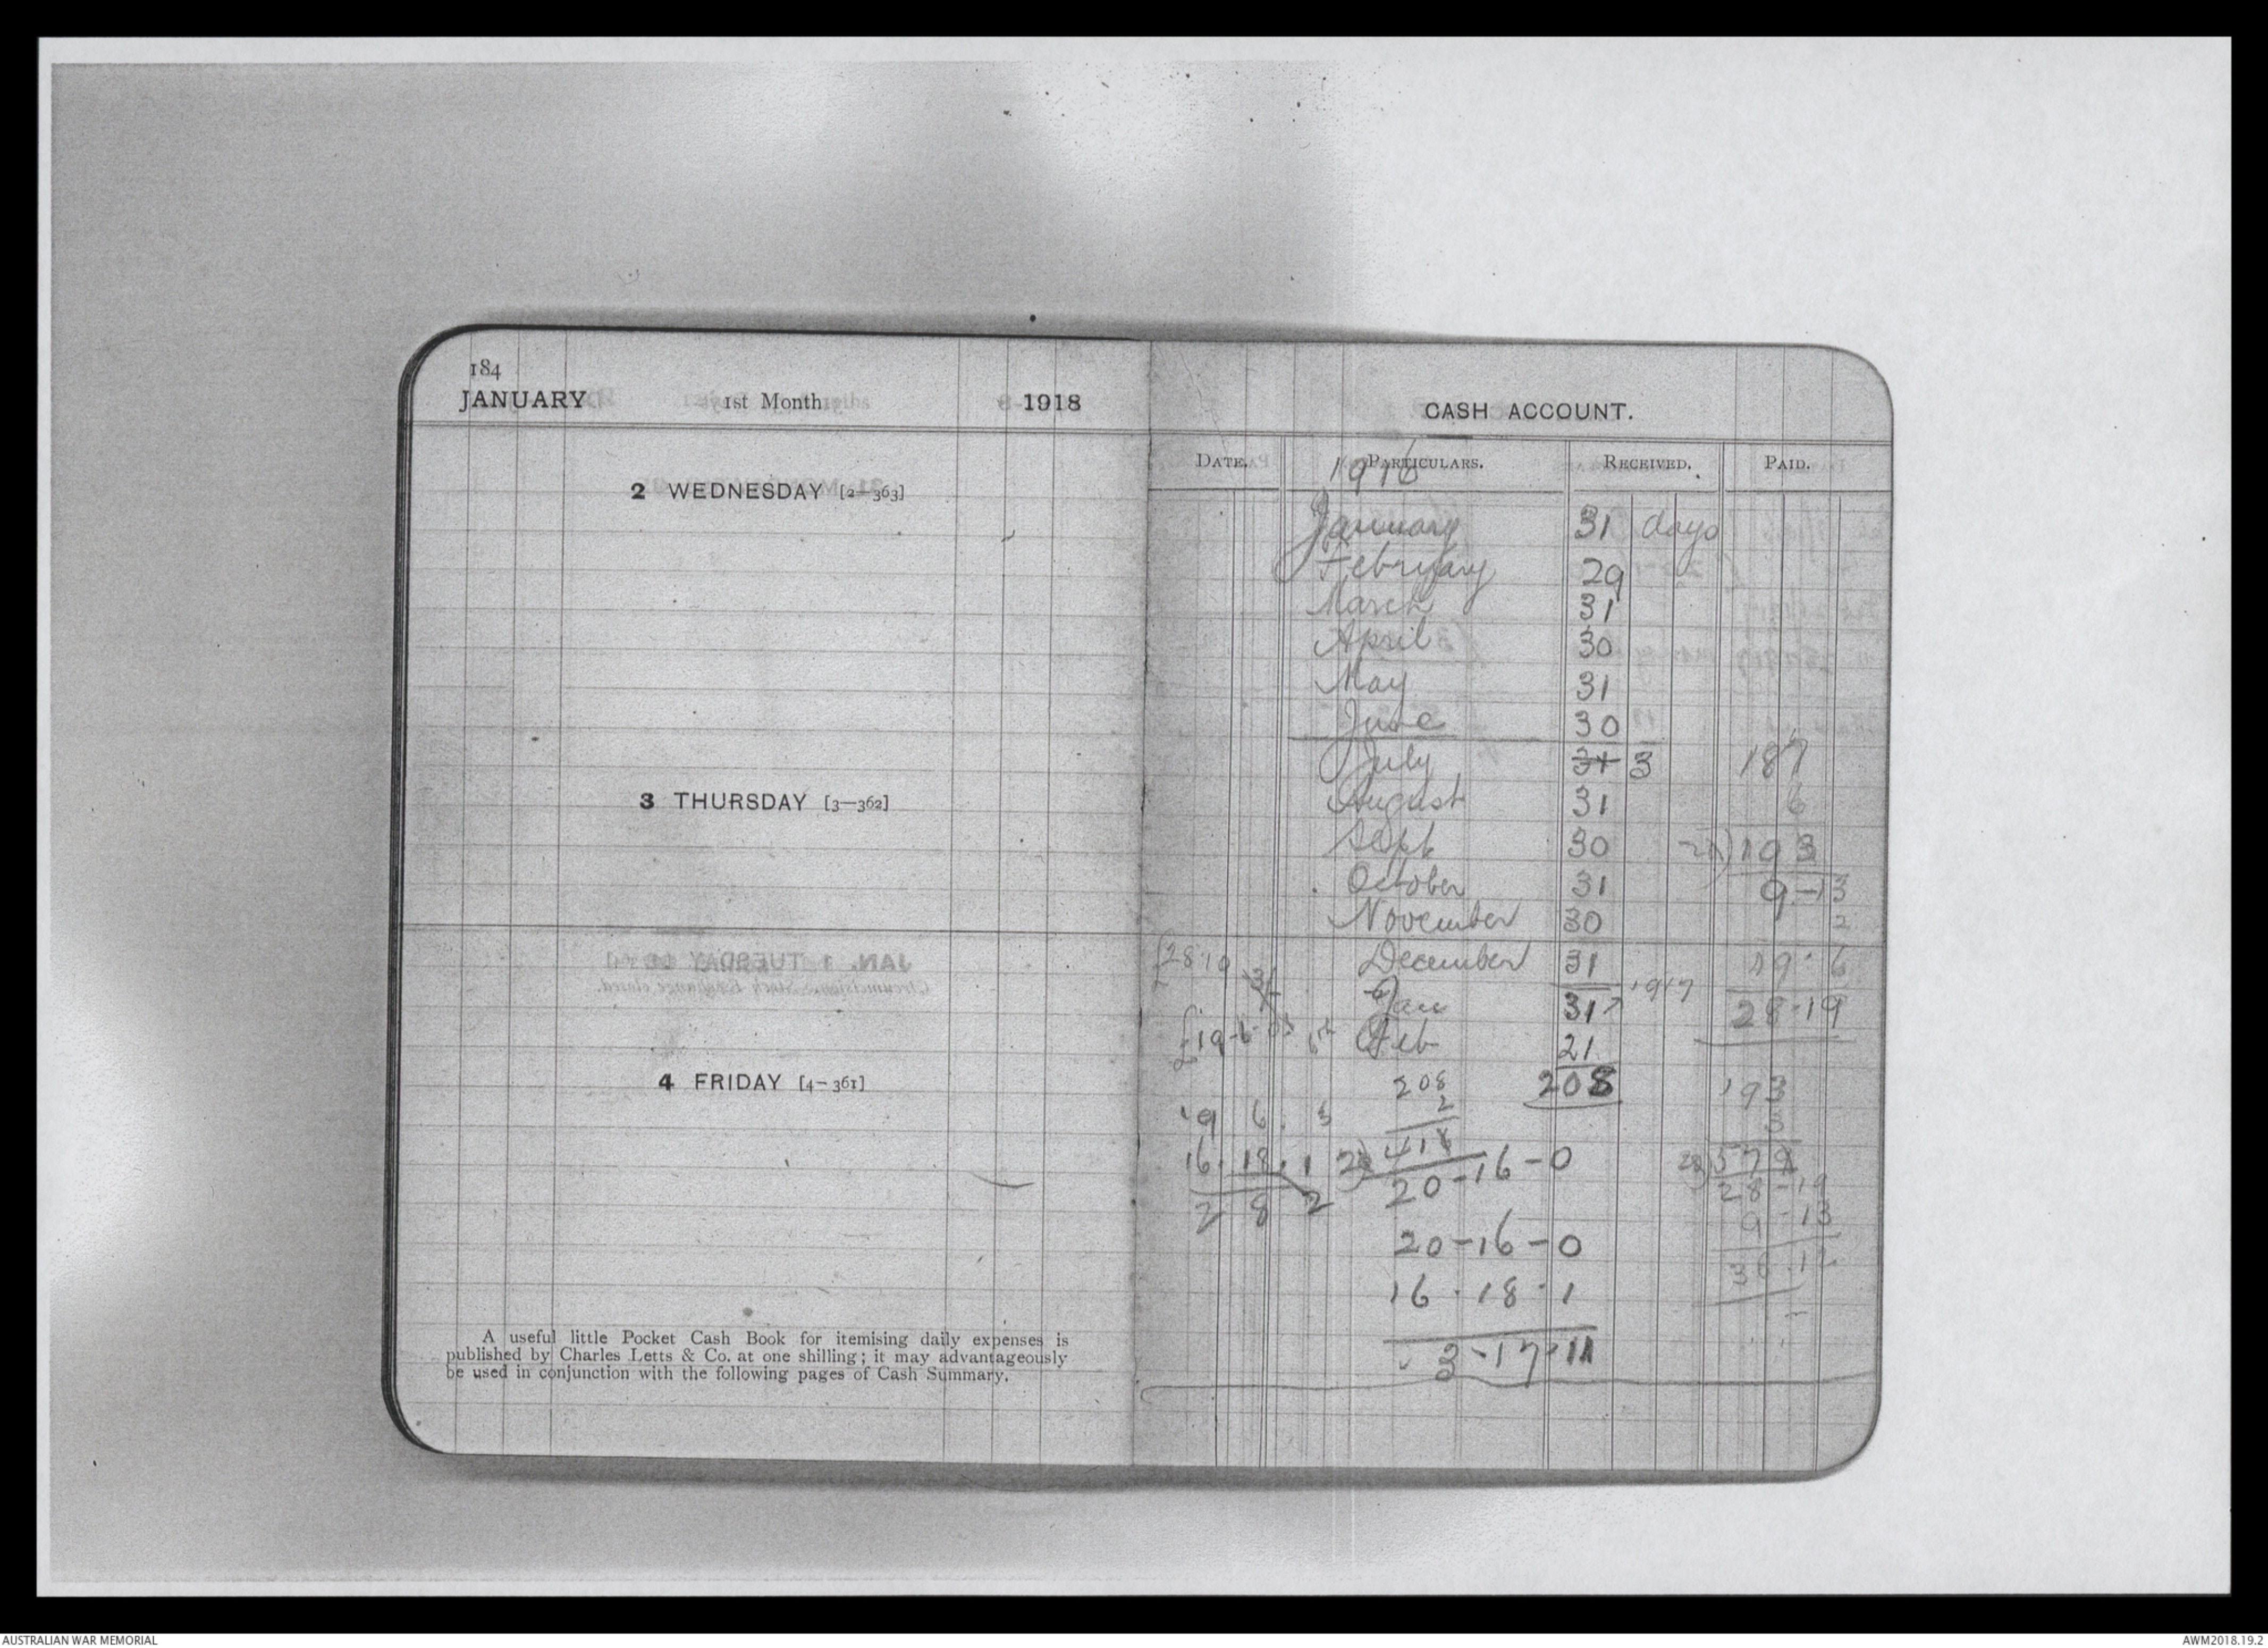 184
JANUARY 1st Month 1918
2 WEDNESDAY [2—363]
3 THURSDAY [3—362]
4 FRIDAY [4—361]
A useful little Pocket Cash Book for itemising daily expenses is
published by Charles Letts & Co. at one shilling; it may advantageously
be used in conjunction with the following pages of Cash Summary.
CASH ACCOUNT.
DATE. PARTICULARS. RECEIVED. PAID.
1916
January 31 days
February 29
March 31
April 30
May 31
June 30
July 31 3 187
August 31 6
Sept 30 193
October 31 9-13
November 30 2
£28.10 December 31 19.6
Jan 31 1917 28.19
£19-6- Feb 21
208 208 193
19 6. 3 2 3
16.18.1 20) 416 20) 579
20-16-0 28-19
2 8 2 9-13
20-16-0
16.18.1
3-17-11
AUSTRALIAN WAR MEMORIAL
AWM2018.19.2